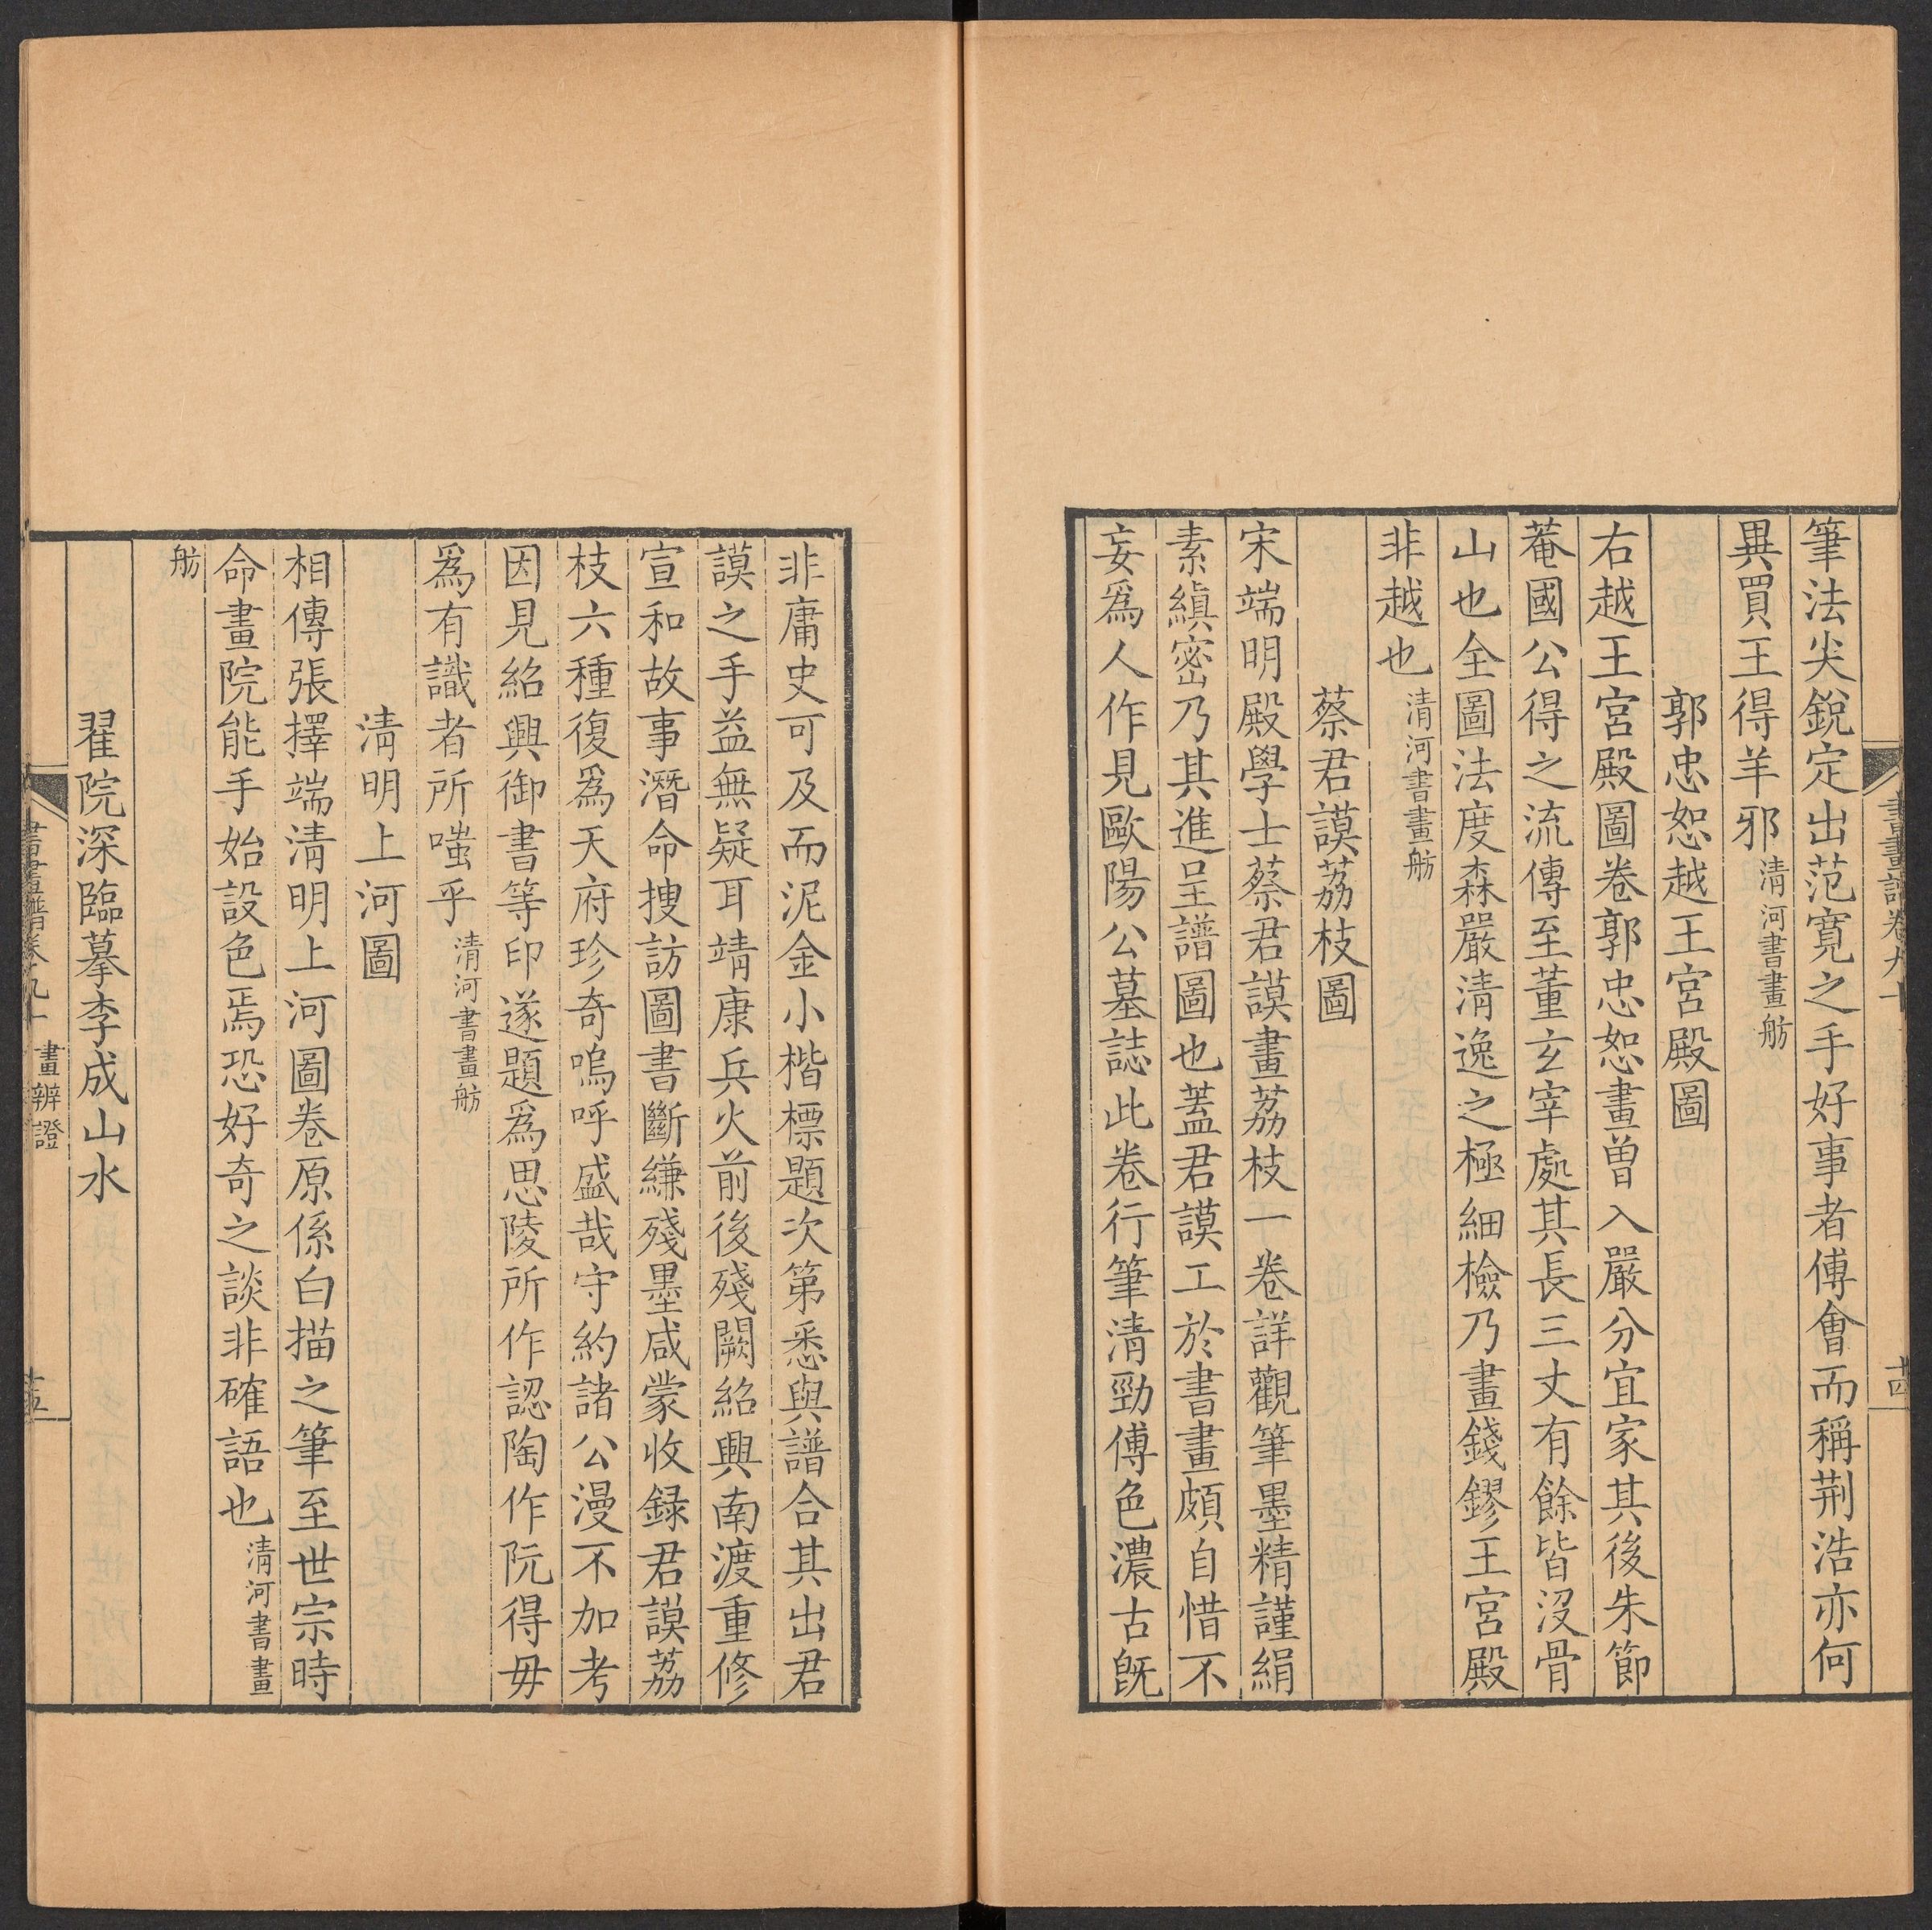 筆法尖銳定出范寬之手好事者傅會而稱荆浩亦何
異買王得羊邪清河書畫舫
郭忠恕越王宮殿圖
右越王宮殿圖卷郭忠恕畫曾入嚴分宜家其後朱節
菴國公得之流傳至董玄宰處其長三丈有餘皆沒骨
山也全圖法度森嚴清逸之極細檢乃畫錢鏐王宮殿
非越也清河書畫舫
蔡君謨荔枝圖
宋端明殿學士蔡君謨畫荔枝一卷詳觀筆墨精謹絹
素縝密乃其進呈譜圖也蓋君謨工於書畫頗自惜不
妄爲人作見歐陽公墓誌此卷行筆清勁傅色濃古旣
非庸史可及而泥金小楷標題次第悉與譜合其出君
謨之手益無疑耳靖康兵火前後殘闕紹興南渡重修
宣和故事潛命搜訪圖書斷縑殘墨咸蒙收録君謨荔
枝六種復爲天府珍奇嗚呼盛哉守約諸公漫不加考
因見紹興御書等印遂題爲思陵所作認陶作阮得毋
爲有識者所嗤乎清河書畫舫
清明上河圖
相傳張擇端清明上河圖卷原係白描之筆至世宗時
命畫院能手始設色焉恐好奇之談非確語也清河書畫
舫
翟院深臨摹李成山水
書畫譜卷九十 畫辨證 十五
書畫譜卷九十 十四